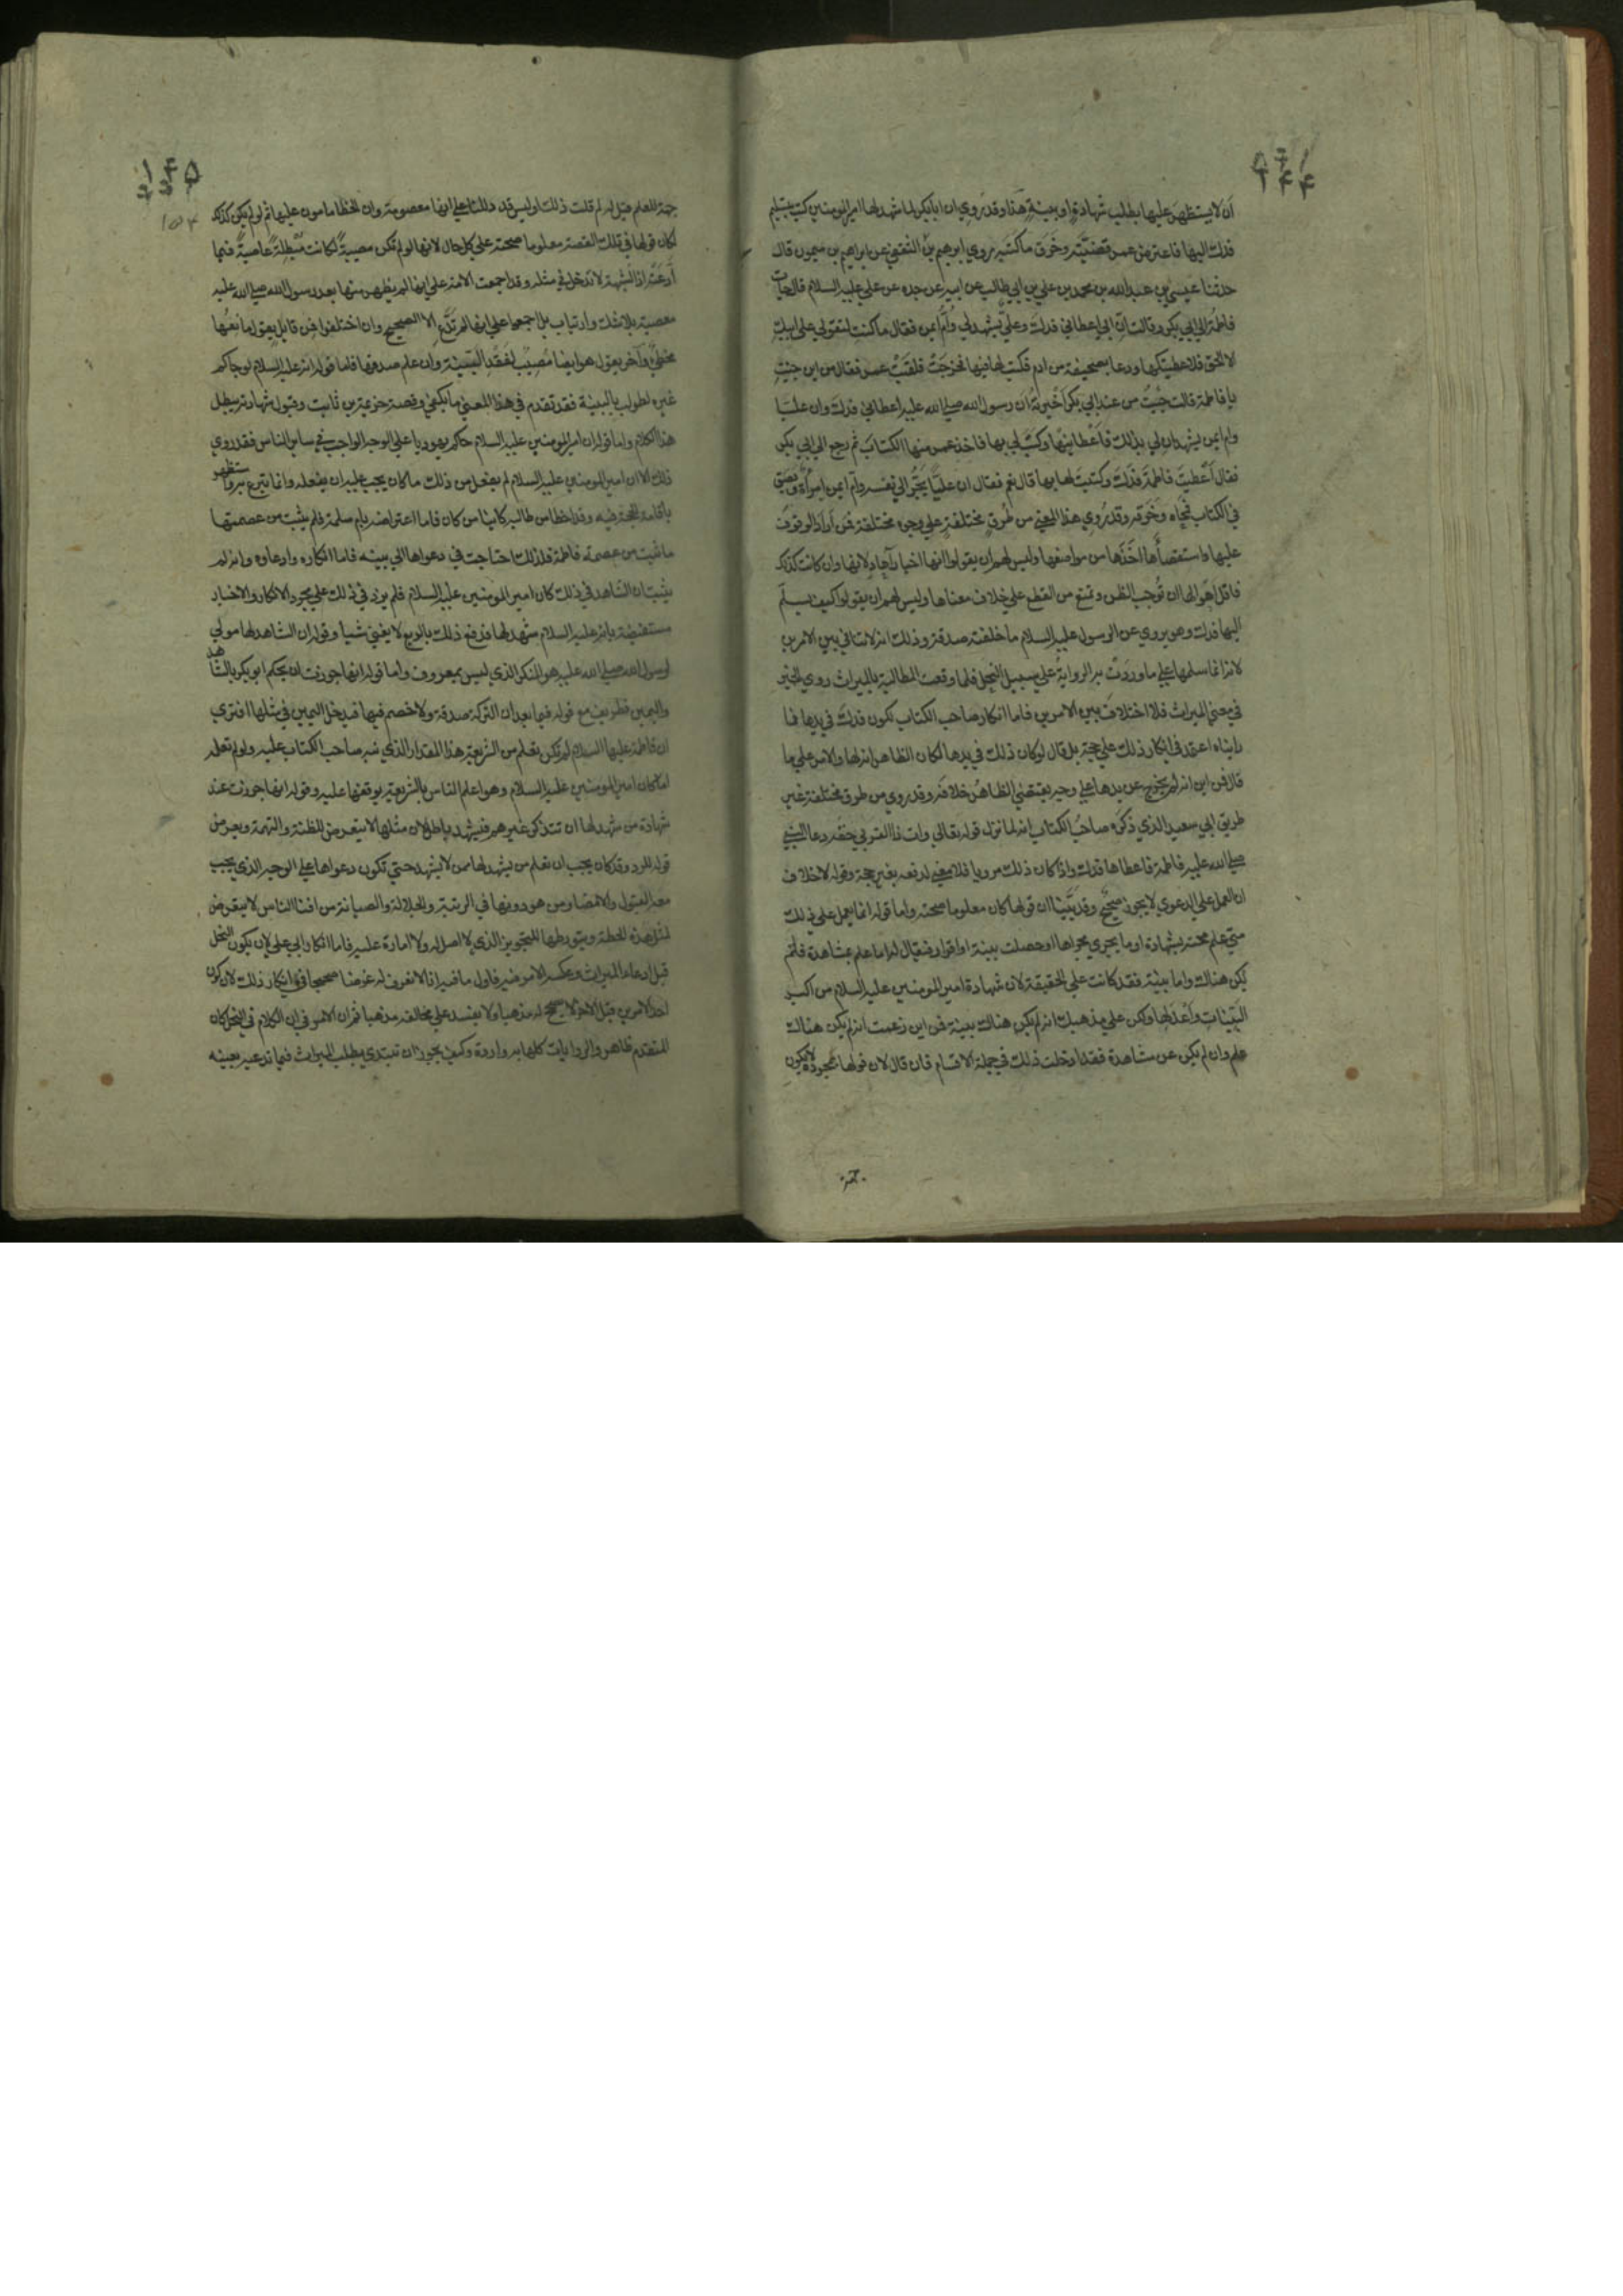 ان لا يستظهر عليها بطلب شهادة او بينة هذا وقد روي ان ابا بكر لما شهد لها امير المومنين كتب بتسليم
فدك اليها فاعترض عمر قضيته وخرق ما كتبه روي ابرهيم بن الثقفي عن ابراهيم بن ميمون قال
حدثنا عيسي بن عبد الله بن محمد بن علي بن ابي طالب عن ابيه عن جده عن علي عليه السلام قال جات
فاطمة الي ابي بكر وقالت ان ابي اعطاني فدك وعلي يشهد لي وام ايمن فقال ما كنت لتقولي علي ابيك
الا الحق قد اعطيتكها ودعا بصحيفة من ادم فكتب لها فيها فخرجت فلقيت عمر فقال من اين جيت
يا فاطمة قالت جيت من عند ابي بكر اخبرته ان رسول الله صلي الله عليه اعطاني فدك وان عليا
وام ايمن يشهدان لي بذلك فاعطانيها وكتب لي بها فاخذ عمر منها الكتاب ثم رجع الي ابي بكر
فقال اعطيت فاطمة فدك وكتبت لها بها قال نعم فقال ان عليا يجر الي نفسه وام ايمن امراة وبصق
في الكتاب فمحاه وخرقه وقد روي هذا المعني من طرق مختلفة علي وجوه مختلفة فمن اراد الوقوف
عليها واستقصاها اخذها من مواضعها وليس لهم ان يقولوا انها اخبار آحاد لانها وان كانت كذلك
فاقل احوالها ان توجب الظن وتمنع من القطع علي خلاف معناها وليس لهم ان يقولوا كيف يسلم
اليها فدك وهو يروي عن الرسول عليه السلام ما خلفته صدقة وذلك انه لا تنافي بين الامرين
لانه انما سلمها علي ما وردت به الرواية علي سبيل النحل فلما وقعت المطالبة بالميراث روي الخبر
في معني الميراث فلا اختلاف بين الامرين فاما انكار صاحب الكتاب لكون فدك في يدها فما
رايناه اعتمد في انكار ذلك علي حجة بل قال لو كان ذلك في يدها لكان الظاهر انه لها والامر علي ما
قال فمن اين انه لم يخرج عن يدها علي وجه يقتضي الظاهر خلافه وقد روي من طرق مختلفة غير
طريق ابي سعيد الذي ذكره صاحب الكتاب انه لما نزل قوله تعالي وات ذا القربي حقه دعا النبي
صلي الله عليه فاطمة فاعطاها فدك واذا كان ذلك مرويا فلا معني لدفعه بغير حجة وقوله لا خلاف
ان العمل علي الدعوي لا يجوز صحيح وقد بينا ان قولها كان معلوما صحته واما قوله انما يعمل علي ذلك
متي علم صحته بشهادة او ما يجري مجراها او حصلت بينة او اقرار فيقال له اما علم بمشاهدة فلم
يكن هناك واما بينة فقد كانت علي الحقيقة لان شهادة امير المومنين عليه السلام من اكبر
البينات واعدلها ولكن علي مذهبك انه لم يكن هناك بينة فمن اين زعمت انه لم يكن هناك
علم وان لم يكن عن مشاهدة فقد ادخلت ذلك في جملة الاقسام فان قال لان قولها بمجرده لا يكون
جهة للعلم قيل له لم قلت ذلك اوليس قد دللنا علي انها معصومة وان الخطا مامون عليها ثم لو لم يكن كذلك
لكان قولها في تلك القصة معلوما صحته علي كل حال لانها لو لم تكن مصيبة لكانت مبطلة عاصية فيما
ادعته اذ الشبهة لا تدخل في مثله وقد اجمعت الامة علي انها لم يظهر منها بعد رسول الله صلي الله عليه
معصية بلا شك وارتياب بل اجمعوا علي انها لم تدع الا الصحيح وان اختلفوا فمن قايل يقول مانعها
مخطي وآخر يقول هو ايضا مصيب لفقد البينة وان علم صدقها فاما قوله انه عليه السلام لو حاكم
غيره لطولب بالبينة فقد تقدم في هذا المعني ما يكفي وقصة خزيمة بن ثابت وقبول شهادته يبطل
هذا الكلام واما قوله ان امير المومنين عليه السلام حاكم يهوديا علي الوجه الواجب في ساير الناس فقد روي
ذلك الا ان امير المومنين عليه السلام لم يفعل من ذلك ما كان يجب عليه ان يفعله وانما تبرع به واستظهر
باقامة الحجة فيه وقد اخطا من طالبه كاينا من كان فاما اعتراضه بام سلمة فلم يثبت من عصمتها
ما ثبت من عصمة فاطمة فلذلك احتاجت في دعواها الي بينه فاما انكاره وادعاوه وانه لم
يثبت ان الشاهد في ذلك كان امير المومنين عليه السلام فلم يزد في ذلك علي مجرد الانكار والاخبار
مستفيضة بانه عليه السلام شهد لها فدفع ذلك بالزيغ لا يغني شيا وقوله ان الشاهد لها مولي
لرسول الله صلي الله عليه هو المنكر الذي ليس بمعروف واما قوله انها جوزت ان يحكم ابو بكر بالشاهد
واليمين فطريف مع قوله فيما بعد ان التركة صدقة ولا خصم فيها فيدخل اليمين في مثلها افتري
ان فاطمة عليها السلام لم تكن تعلم من الشريعة هذا المقدار الذي نبه صاحب الكتاب عليه ولو لم تعلمه
اما كان امير المومنين عليه السلام وهو اعلم الناس بالشريعة يوقفها عليه وقوله انها جوزت عند
شهادة من شهد لها ان تتذكر غيرهم فيشهد باطل لان مثلها لا يتعرض للظنة والتهمة ويعرض
قوله للرد وقد كان يجب ان تعلم من يشهد لها ممن لا يشهد حتي تكون دعواها علي الوجه الذي يجب
معه القبول والامضا ومن هو دونها في الرتبة والجلالة والصيانة من افنا الناس لا يتعرض
لمثل هذه الخطة ويتورطها للتجويز الذي لا اصل له ولا امارة عليه فاما انكار ابي علي لان يكون النحل
قبل ادعاء الميراث وعكسه الامر فيه فاول ما فيه انا لا نعرف له غرضا صحيحا في انكار ذلك لان كون
احد الامرين قبل الاخر لا يصحح له مذهبا ولا يفسد علي مخالفه مذهبا ثم ان الامر في ان الكلام في النحل كان
المتقدم ظاهر والروايات كلها به واردة وكيف يجوز ان تبتدي بطلب الميراث فيما تدعيه بعينه